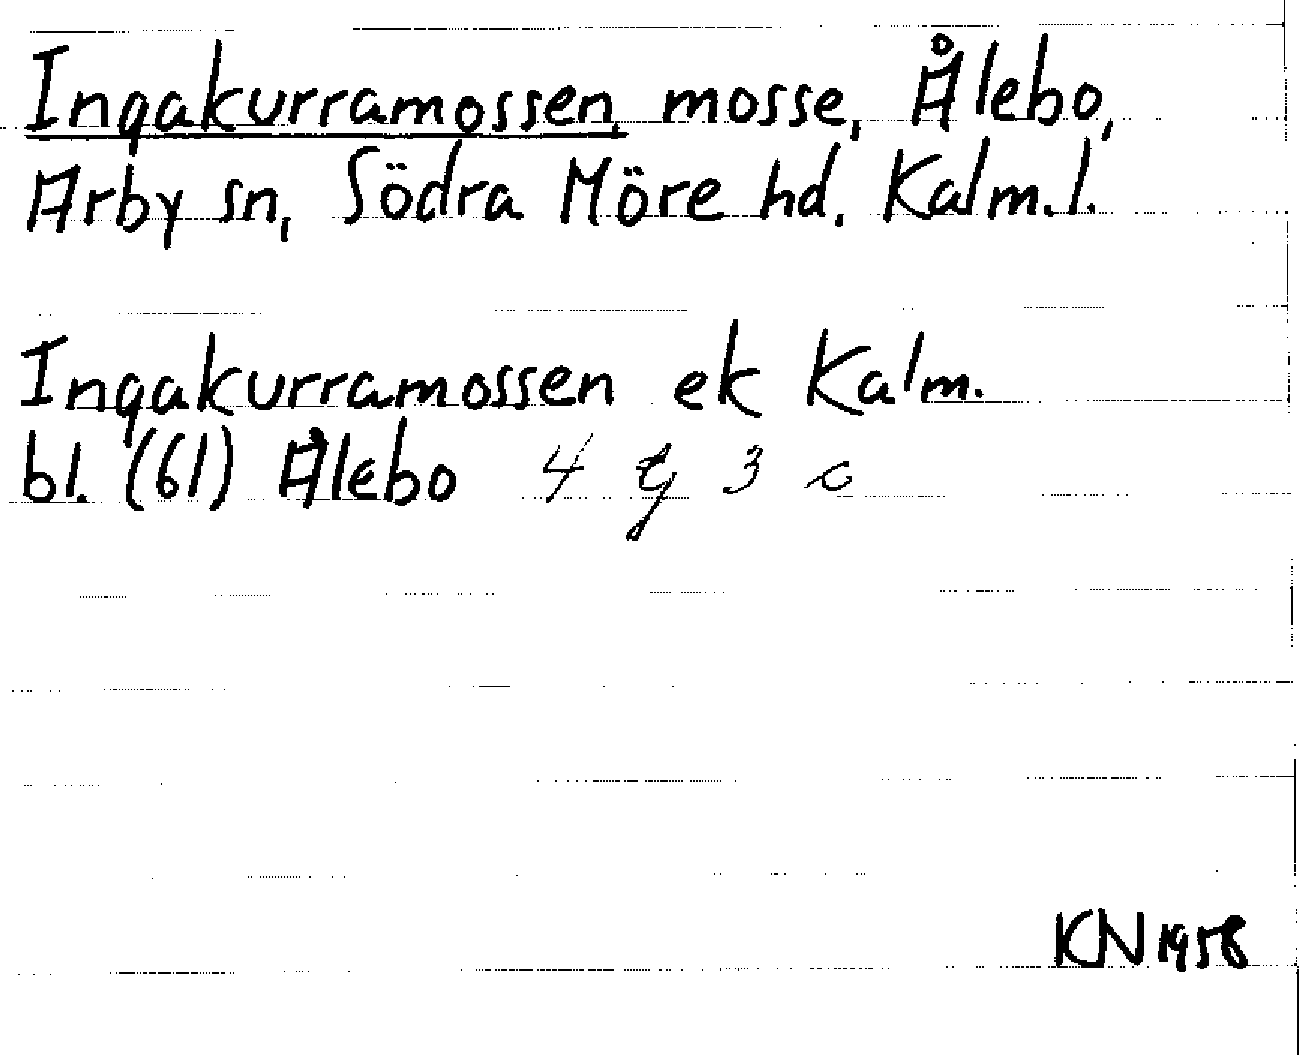 Ingakurramossen, mosse, Ålebo,
Arby sn, Södra Möre hd. Kalm.l.
Ingakurramossen ek Kalm.
bl. (61) Ålebo 4 g 3 c
KN 1958